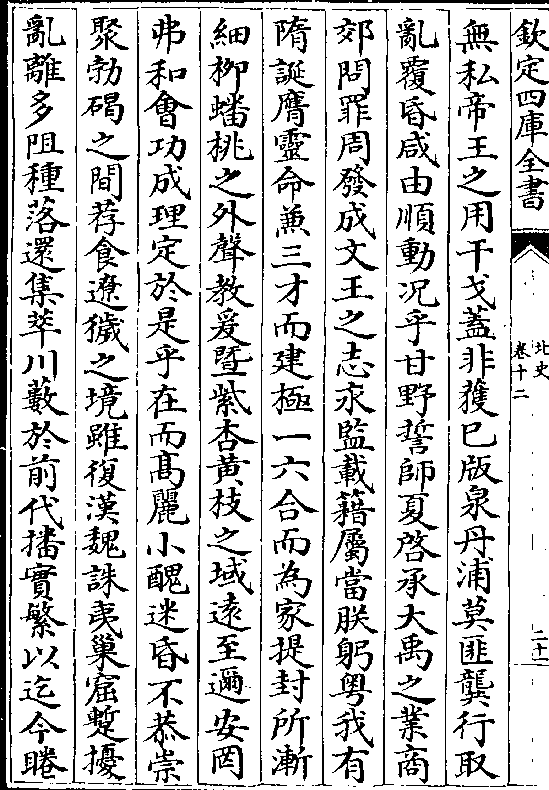 欽定四庫全書
北史
卷十二
二十一
無私帝王之用干戈蓋非獲已版泉丹浦莫匪龔行取
亂覆昏咸由順動况乎甘野誓師夏啓承大禹之業商
郊問罪周發成文王之志永監載籍屬當朕躬粤我有
隋誕膺靈命兼三才而建極一六合而為家提封所漸
細柳蟠桃之外聲教爰暨紫杏黄枝之域遠至邇安罔
弗和會功成理定於是乎在而髙麗小醜迷昏不恭崇
聚勃碣之間荐食遼獩之境雖復漢魏誅夷巢窟蹔擾
亂離多阻種落還集萃川藪於前代播實繁以迄今睠